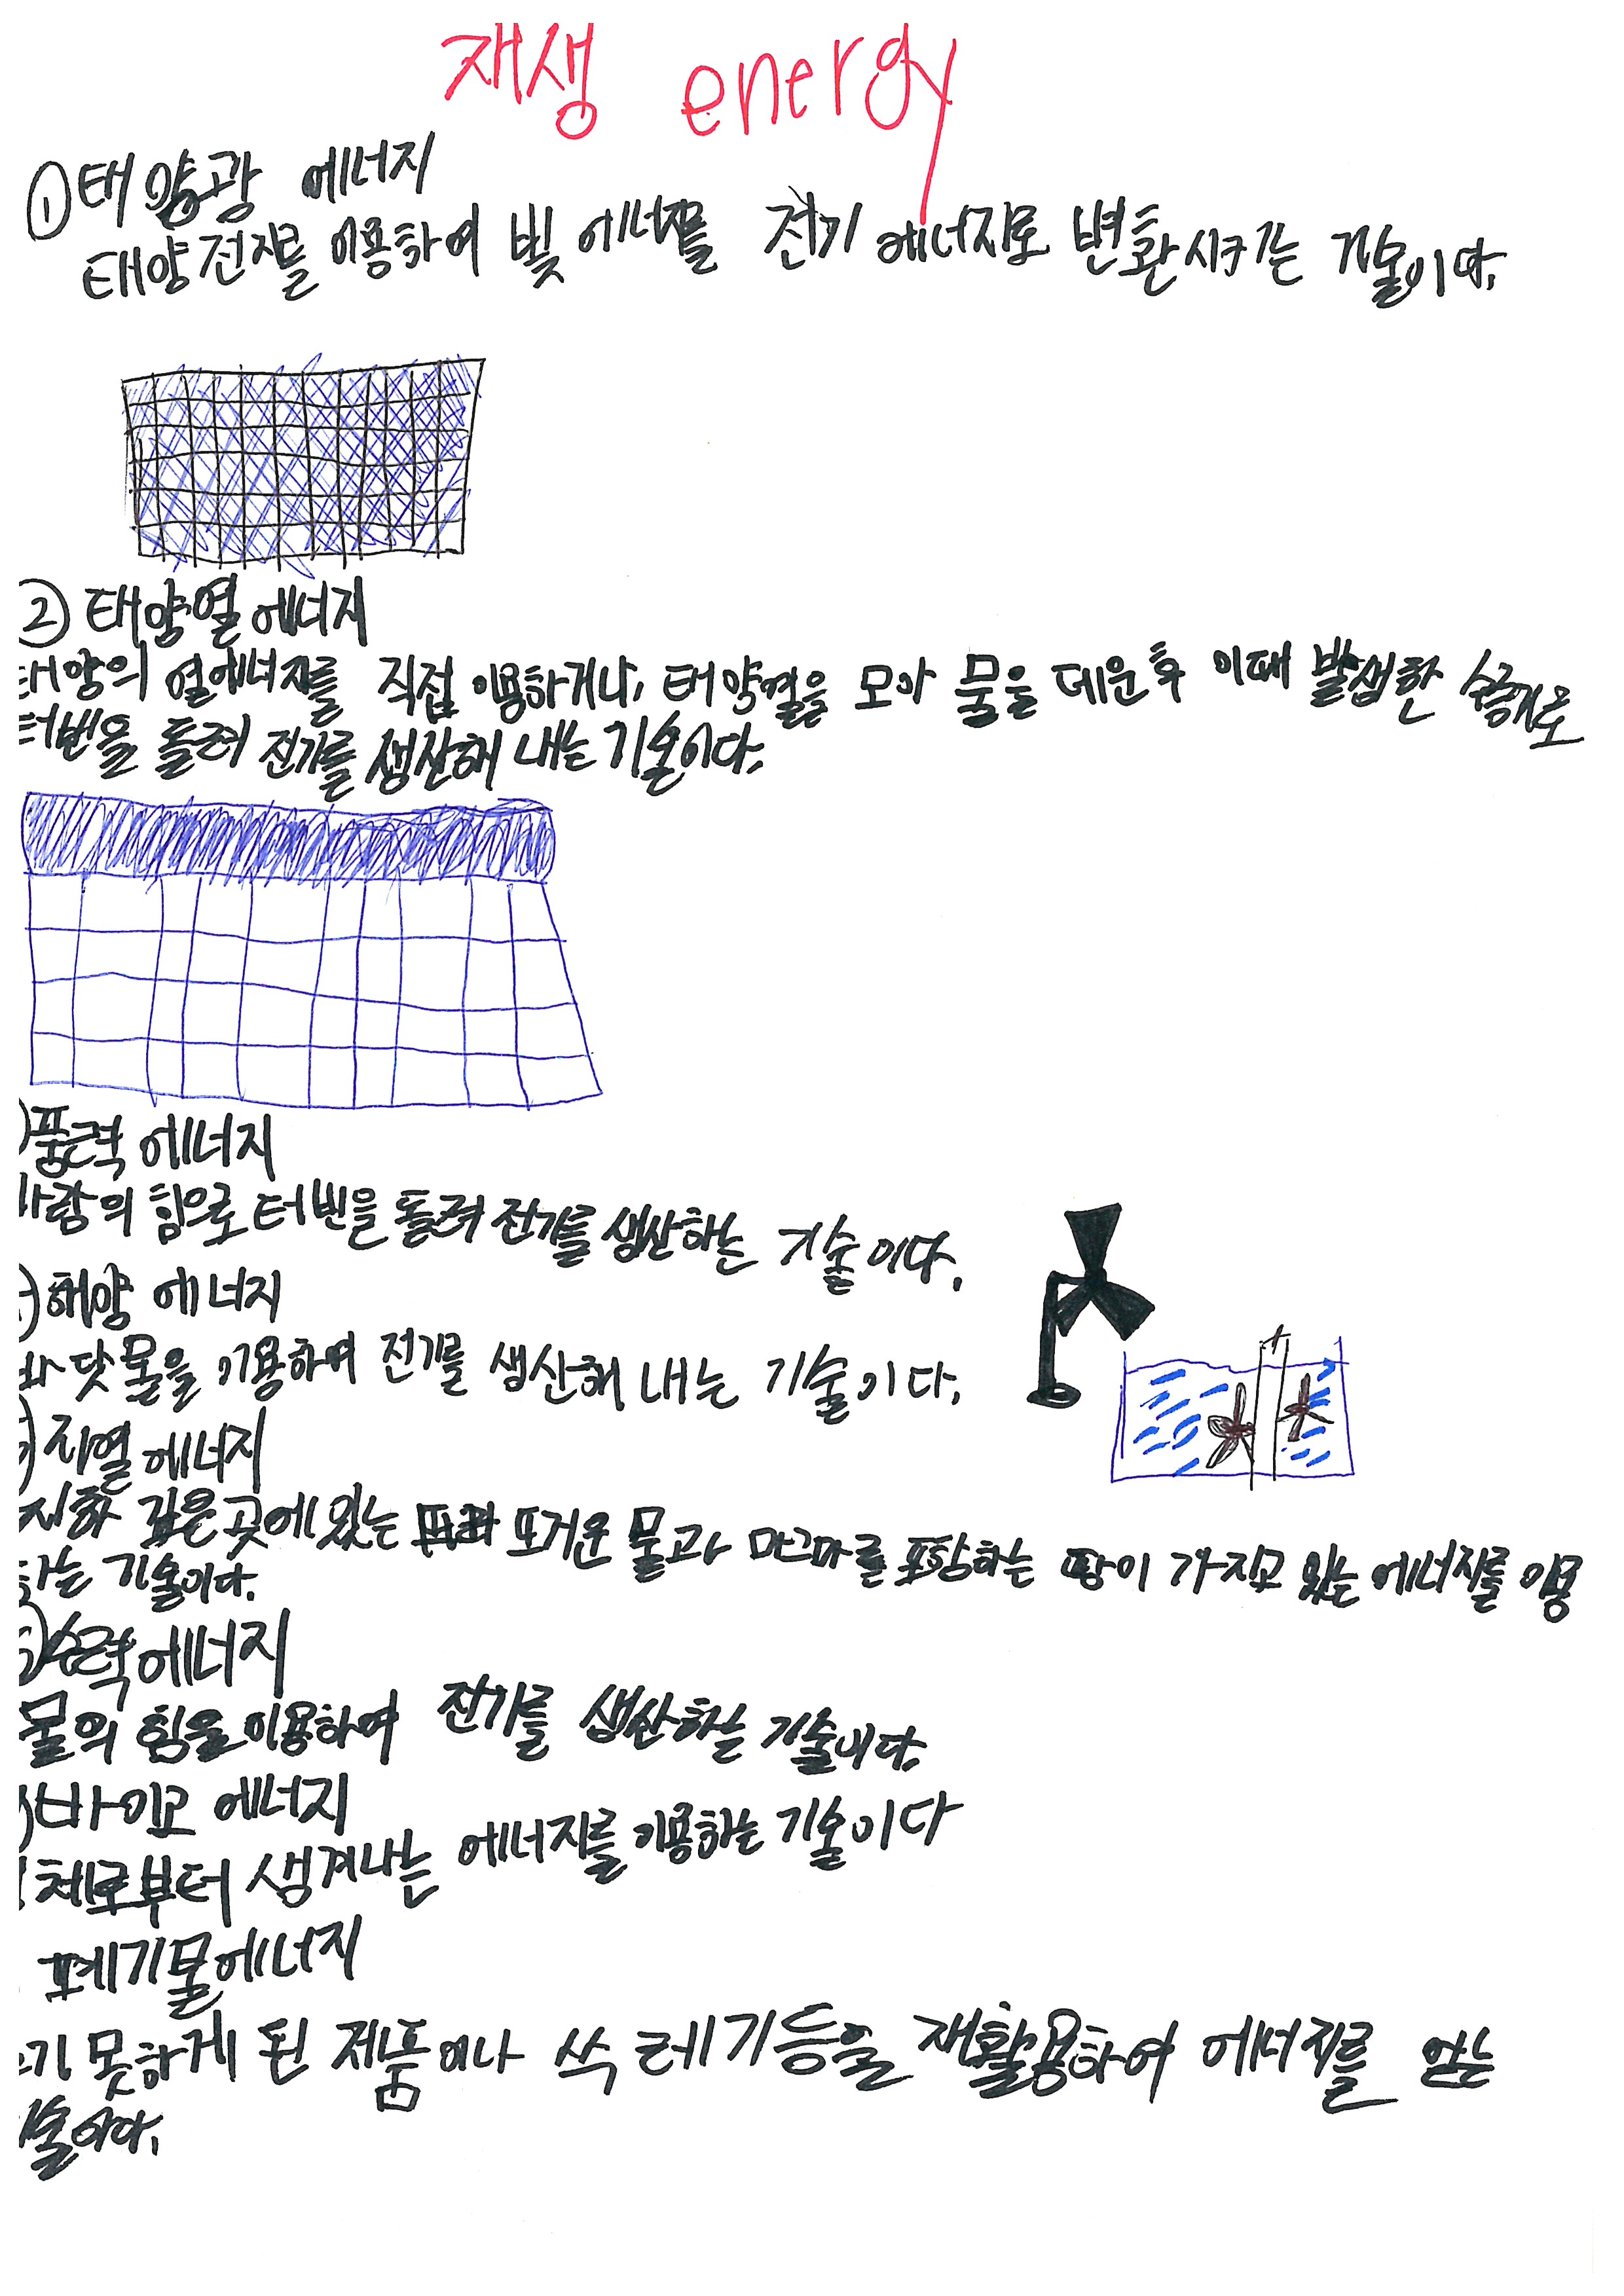 재생 energy
① 태양광 에너지
태양전지를 이용하여 빛 에너지를 전기 에너지로 변환시키는 기술이다.
② 태양열 에너지
태양의 열에너지를 직접 이용하거나, 태양열을 모아 물을 데운후 이때 발생한 수증기로
터빈을 돌려 전기를 생산해 내는 기술이다.
)풍력 에너지
바람의 힘으로 터빈을 돌려 전기를 생산하는 기술이다.
)해양 에너지
바닷물을 이용하여 전기를 생산해 내는 기술이다.
)지열 에너지
지하 깊은 곳에 있는 뜨거운 물과 마그마를 포함하는 땅이 가지고 있는 에너지를 이용
하는 기술이다.
)수력에너지
물의 힘을 이용하여 전기를 생산하는 기술이다.
)바이오 에너지
체로부터 생겨나는 에너지를 이용하는 기술이다
폐기물에너지
못하게 된 제품이나 쓰레기등을 재활용하여 에너지를 얻는
기술이다.